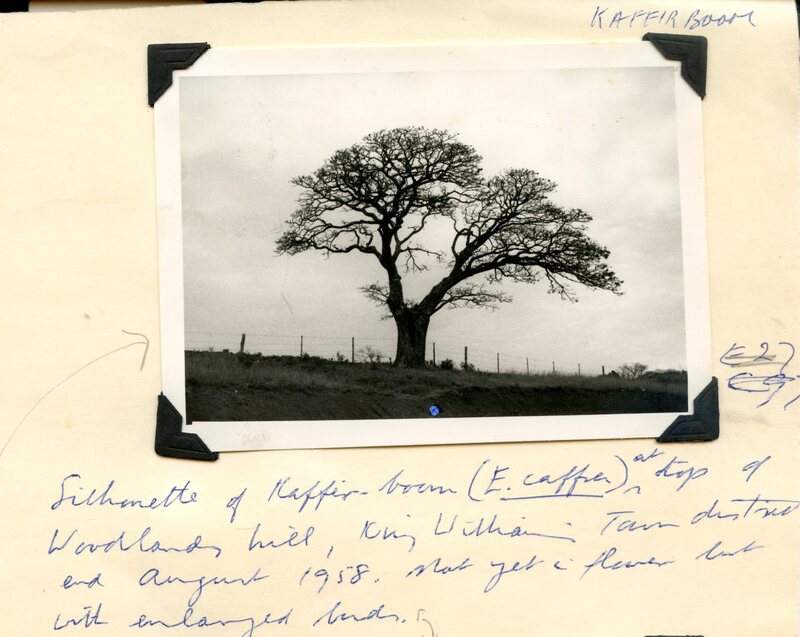 KAFFIRBOOM
Silhouette of Kaffir-boom (E. caffra) at top of
Woodlands hill, King William's Town district
end August 1958. Not yet in flower but
with enlarged buds.